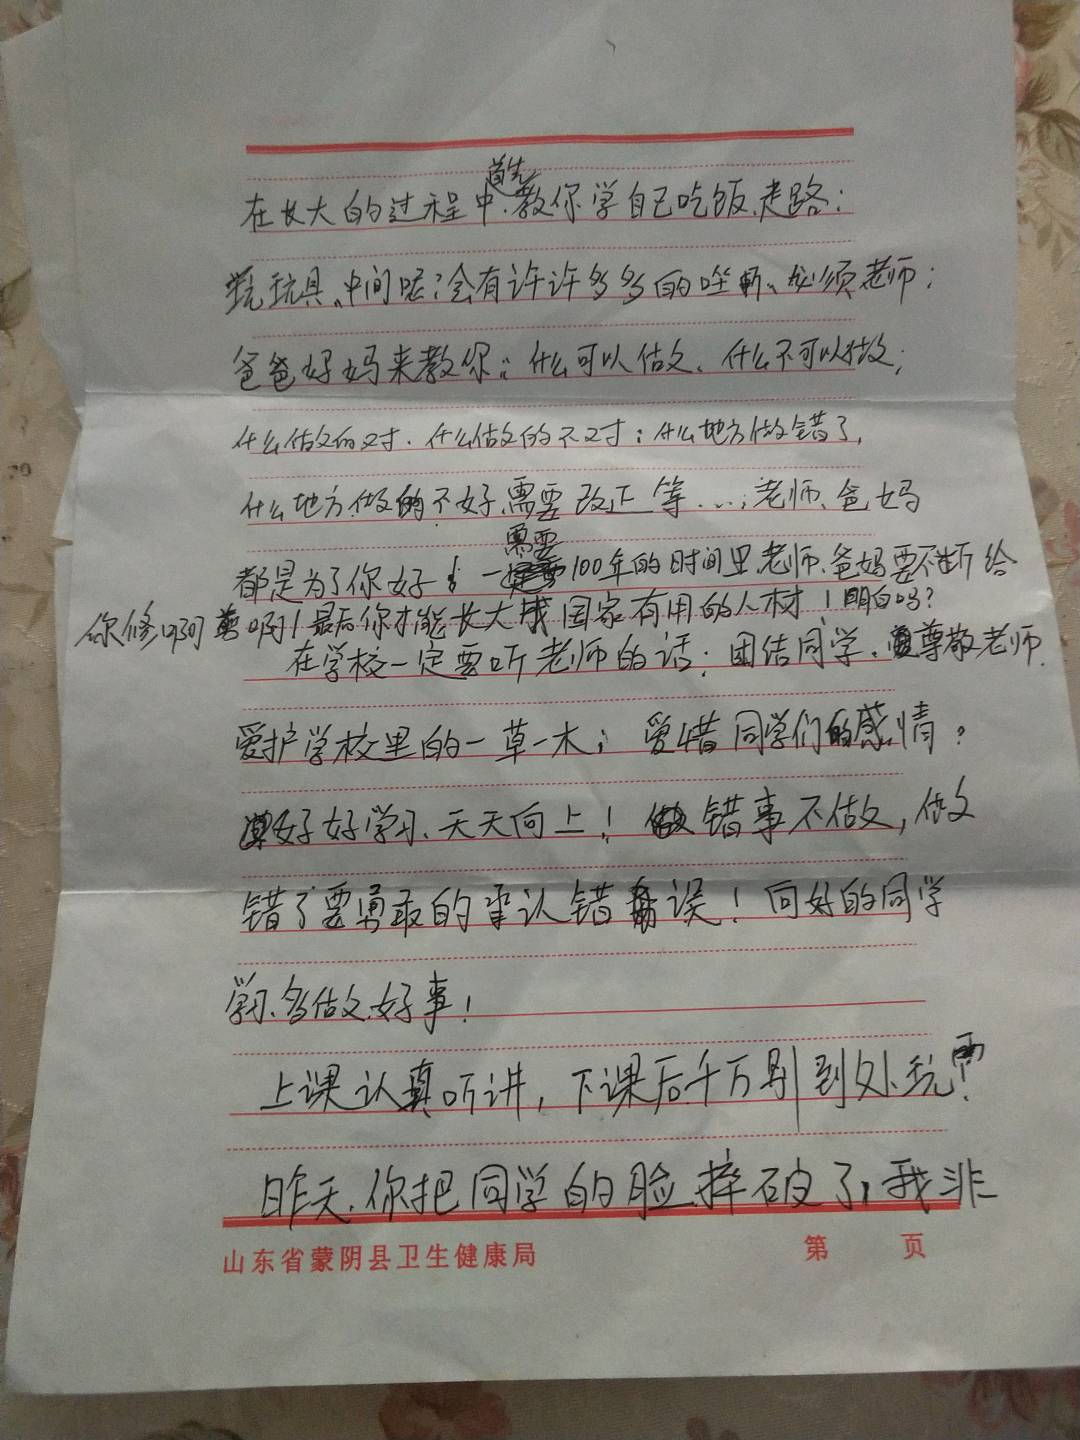 首先
在长大的过程中、教你学自己吃饭、走路；
玩玩具、中间呢？会有许许多多的 必须老师；
爸爸妈妈来教你；什么可以做、什么不可以做；
什么做的对、什么做的不对；什么地方做错了，
什么地方做的不好、需要改正等…；老师、爸妈
需要
都是为了你好！一 100年的时间里、老师、爸妈要不断给
你修啊剪啊！最后你才能长大成国家有用的人材！明白吗？
在学校一定要听老师的话；团结同学、尊敬老师、
爱护学校里的一草一木；爱惜同学们的感情？
好好学习、天天向上！错事不做，做
错了要勇敢的承认错误！向好的同学
学习、多做好事！
上课认真听讲，下课后千万别到处玩！
昨天、你把同学的脸摔破了，我非
山东省蒙阴县卫生健康局 第 页